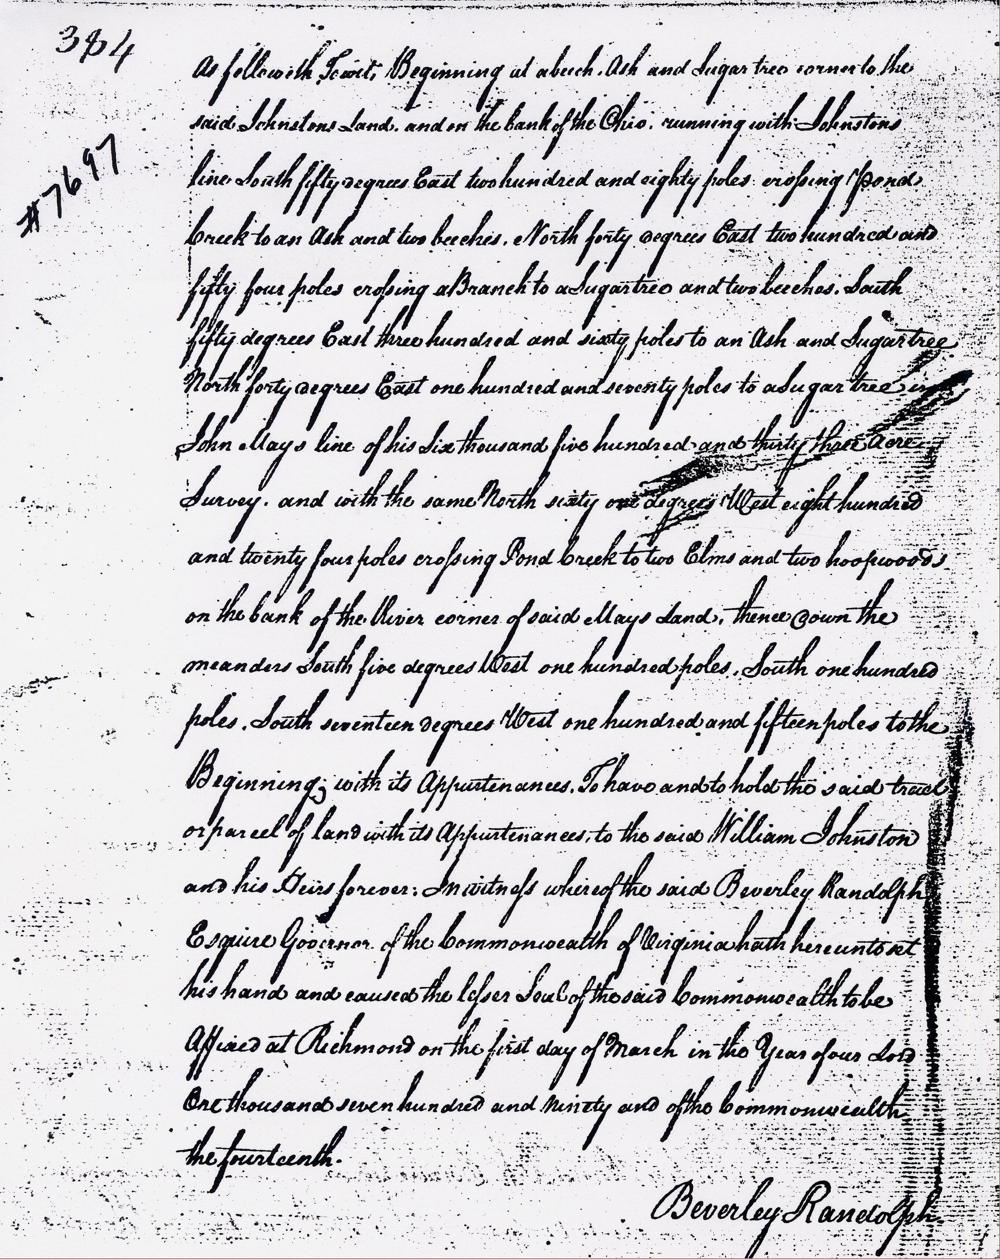 384
#7697
As followeth Towit, Beginning at a beech. Ash and Sugar tree corner to the
said Johnstons Land. and on the bank of the Ohio. running with Johnstons
line South fifty degrees East two hundred and eighty poles crossing Pond
Creek to an Ash and two beeches. North forty degrees East two hundred and
fifty four poles crossing a Branch to a Sugartree and two beeches. South
fifty degrees East three hundred and sixty poles to an Ash and Sugartree
North forty degrees East one hundred and seventy poles to a Sugar tree in
John Mays line of his Six thousand five hundred and thirty three Acre
Survey. and with the same North sixty one degrees West eight hundred
and twenty four poles crossing Pond Creek to two Elms and two hoopwoods
on the bank of the River corner of said Mays Land. thence down the
meanders South five degrees West one hundred poles. South one hundred
poles. South seventeen degrees West one hundred and fifteen poles to the
Beginning; with its Appurtenances. To have and to hold the said tract
or parcel of land with its Appurtenances, to the said William Johnston
and his Heirs forever: In witness whereof the said Beverley Randolph
Esquire Governor of the Commonwealth of Virginia hath hereunto set
his hand and caused the lesser Seal of the said Commonwealth to be
Affixed at Richmond on the first day of March in the Year of our Lord
One thousand seven hundred and Ninety and of the Commonwealth
the fourteenth.
Beverley Randolph